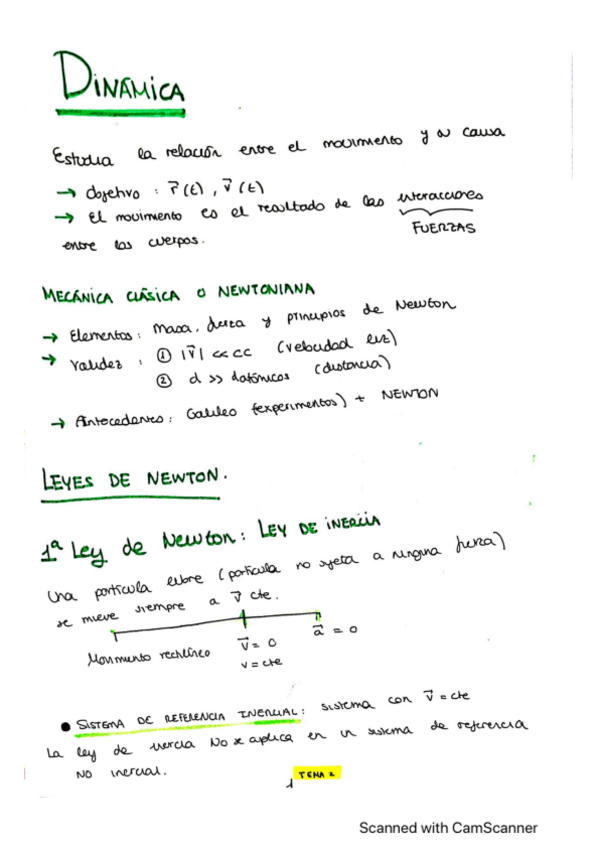 DINÁMICA
Estudia la relación entre el movimiento y su causa
→ Objetivo : r⃗(t) , v⃗(t)
→ El movimiento es el resultado de las interacciones
FUERZAS
entre los cuerpos.
MECÁNICA CLÁSICA O NEWTONIANA
→ Elementos: Masa, fuerza y principios de Newton
→ Validez : ① |v⃗| <<< c (velocidad luz)
② d >> datómicos (distancia)
→ Antecedentes: Galileo (experimentos) + NEWTON
LEYES DE NEWTON.
1ª Ley de Newton: LEY DE INERCIA
Una partícula libre (partícula no sujeta a ninguna fuerza)
se mueve siempre a v⃗ cte.
Movimiento rectilíneo v⃗ = 0 a⃗ = 0
v = cte
• SISTEMA DE REFERENCIA INERCIAL: sistema con v⃗ = cte
La ley de inercia No se aplica en un sistema de referencia
NO inercial.
1 TEMA 2
Scanned with CamScanner